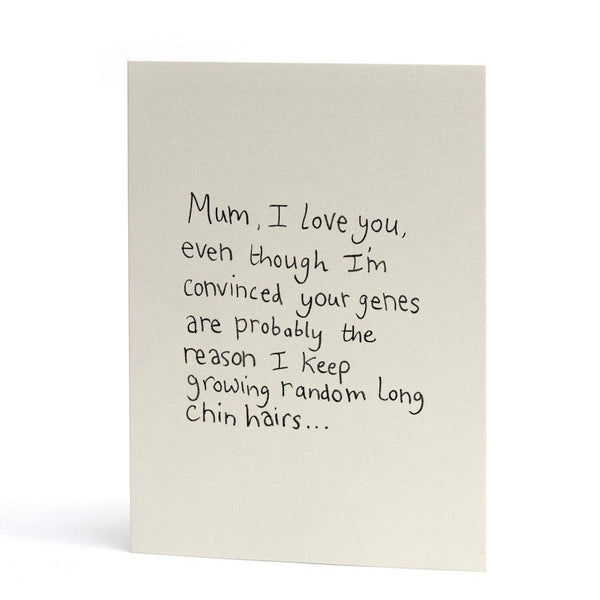 Mum, I love you,
even though I'm
convinced your genes
are probably the
reason I keep
growing random long
chin hairs...